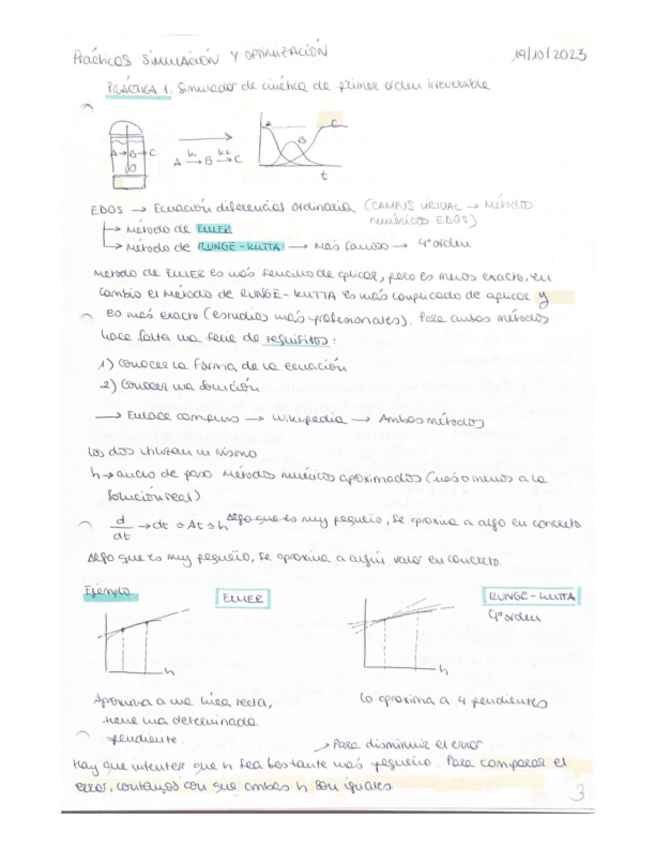 Prácticas SIMULACIÓN Y OPTIMIZACIÓN 19/10/2023
PRÁCTICA 1. Simulador de cinética de primer orden irreversible
A → B → C
A k1→ B k2→ C
A B C
t
EDOS → Ecuación diferencial ordinaria (CAMPUS VIRTUAL → Métodos
numéricos EDOS)
→ Método de EULER
→ Método de RUNGE-KUTTA → Más famoso → 4º orden
Método de EULER es más sencillo de aplicar, pero es menos exacto, en
cambio el Método de RUNGE-KUTTA es más complicado de aplicar y
es más exacto (estudios más profesionales). Para ambos métodos
hace falta una serie de requisitos:
1) Conocer la forma de la ecuación
2) Conocer una solución
→ Enlace campus → Wikipedia → Ambos métodos
Los dos utilizan un mismo
h → ancho de paso. Métodos numéricos aproximados (más o menos a la
solución real)
d/dt → dt ≈ Δt ≈ h Algo que es muy pequeño, se aproxima a algo en concreto
Algo que es muy pequeño, se aproxima a algún valor en concreto.
Ejemplo EULER RUNGE-KUTTA
4º orden
h h
Aproxima a una línea recta, Lo aproxima a 4 pendientes
tiene una determinada
pendiente.
→ Para disminuir el error
Hay que intentar que h sea bastante más pequeño. Para comparar el
error, contamos con que ambas h son iguales.
3